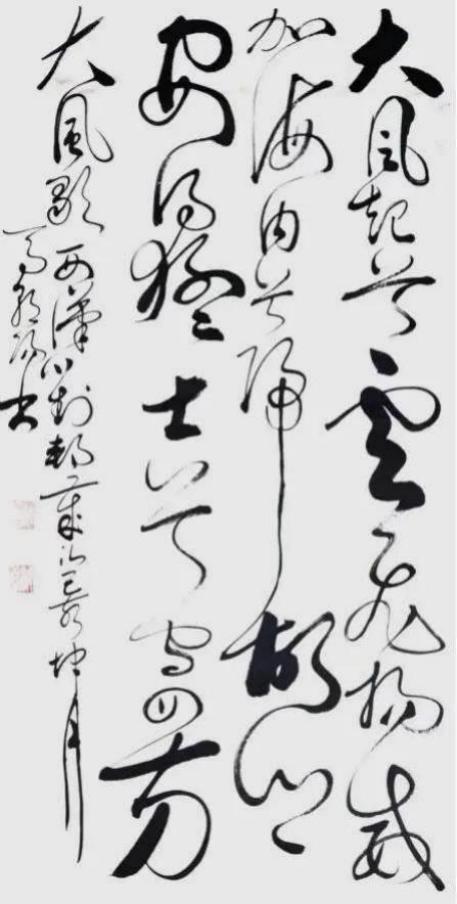 大風起兮雲飛揚威
加海內兮歸故鄉
安得猛士兮守四方
大風歌西漢劉邦歲次月
書